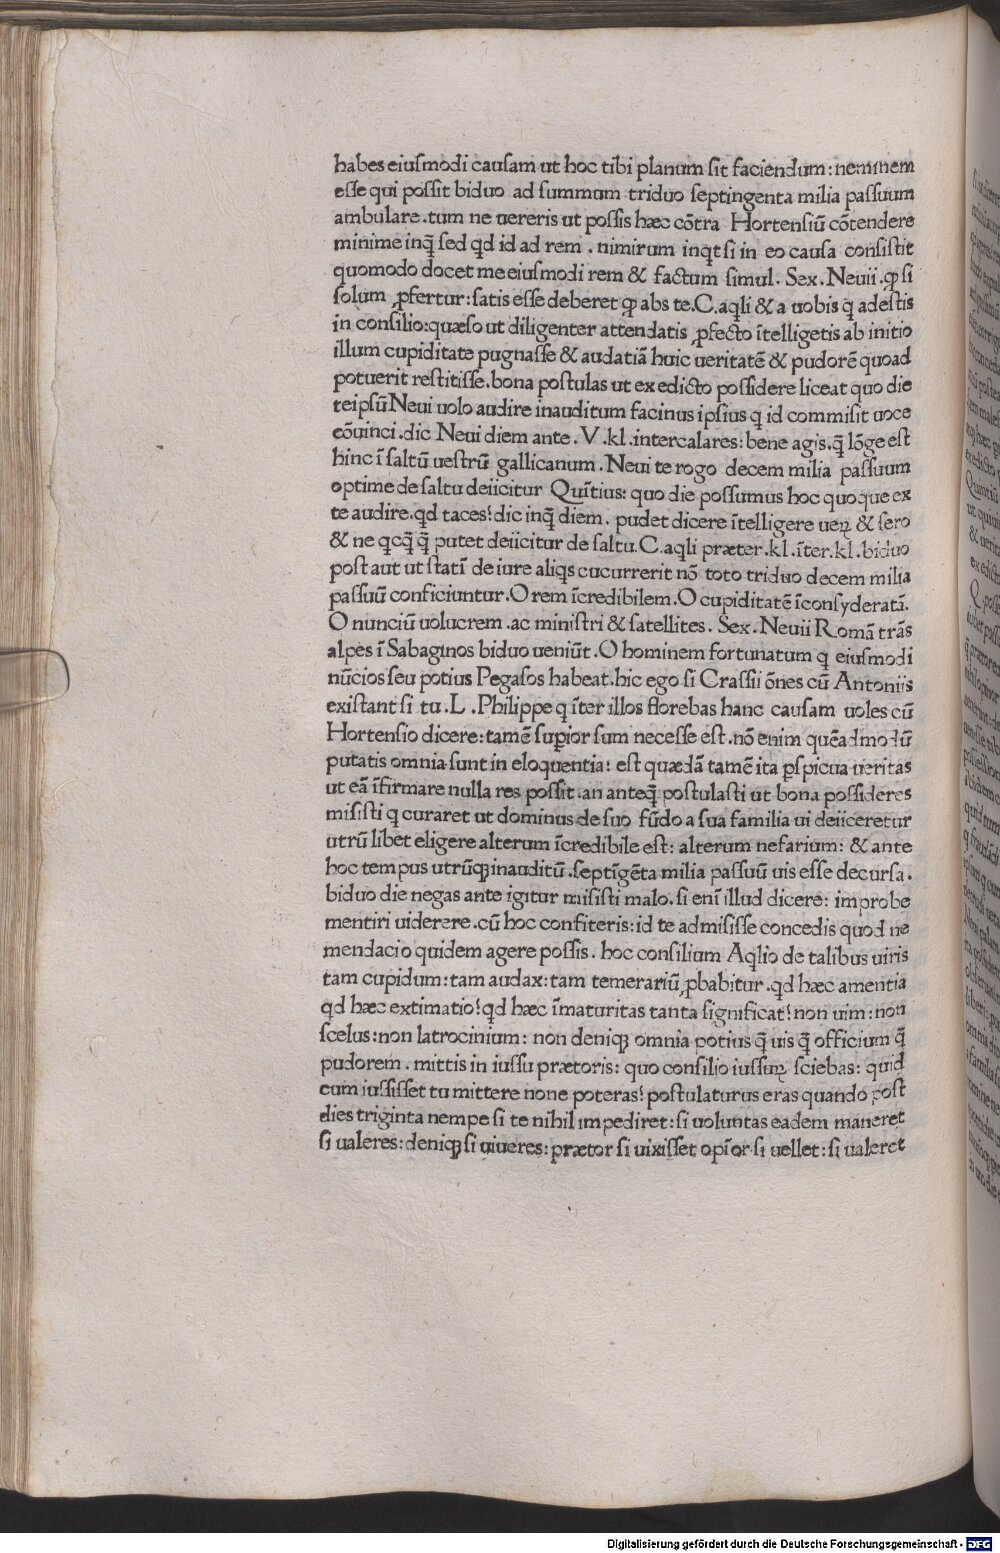 habes eiuſmodi cauſam ut hoc tibi planum ſit faciendum: neminem
eſſe qui poſſit biduo ad ſummum triduo ſeptingenta milia paſſuum
ambulare . tum ne uereris ut poſſis hæc cõtra Hortenſiũ cõtendere
minime inq̃ ſed qd id ad rem . nimirum inqt ſi in eo cauſa conſiſtit
quomodo docet me eiuſmodi rem & factum ſimul . Sex . Neuii . ꝙ ſi
ſolum ꝓfertur: ſatis eſſe deberet ꝙ abs te. C. aqli & a uobis q̃ adeſtis
in conſilio: quæſo ut diligenter attendatis ꝓfecto ĩtelligetis ab initio
illum cupiditate pugnaſſe & audatiã huic ueritatẽ & pudorẽ quoad
potuerit reſtitiſſe. bona poſtulas ut ex edicto poſſidere liceat quo die
teipſũ Neui uolo audire inauditum facinus ipſius q id commiſit uoce
cõuinci . dic Neui diem ante . V . kl . intercalares: bene agis. q̃ lõge eſt
hinc ĩ ſaltũ ueſtrũ gallicanum . Neui te rogo decem milia paſſuum
optime de ſaltu deiicitur Quĩtius: quo die poſſumus hoc quoque ex
te audire. qd taces! dic inq̃ diem . pudet dicere ĩtelligere ueꝝ & ſero
& ne qcq̃ q̃ putet deiicitur de ſaltu. C. aqli præter . kl . ĩter. kl . biduo
poſt aut ut ſtatĩ de iure aliqs cucurrerit nõ toto triduo decem milia
paſſuũ conficiuntur. O rem ĩcredibilem . O cupiditatẽ ĩconſyderatã.
O nunciũ uolucrem . ac miniſtri & ſatellites . Sex . Neuii Romã trãs
alpes ĩ Sabaginos biduo ueniũt . O hominem fortunatum q eiuſmodi
nũcios ſeu potius Pegaſos habeat . hic ego ſi Craſſii õnes cũ Antoniis
exiſtant ſi tu . L . Philippe q ĩter illos florebas hanc cauſam uoles cũ
Hortenſio dicere: tamẽ ſuꝑior ſum neceſſe eſt . nõ enim quẽadmodũ
putatis omnia ſunt in eloquentia: eſt quædã tamẽ ita ꝑſpicua ueritas
ut eã ĩfirmare nulla res poſſit . an anteq̃ poſtulaſti ut bona poſſideres
miſiſti q curaret ut dominus de ſuo fũdo a ſua familia ui deiiceretur
utrũ libet eligere alterum ĩcredibile eſt: alterum nefarium: & ante
hoc tempus utrũꝙ inauditũ . ſeptĩgẽta milia paſſuũ uis eſſe decurſa .
biduo die negas ante igitur miſiſti malo. ſi enĩ illud dicere: improbe
mentiri uiderere . cũ hoc confiteris: id te admiſiſſe concedis quod ne
mendacio quidem agere poſſis . hoc conſilium Aqlio de talibus uiris
tam cupidum: tam audax: tam temerariũ ꝓbabitur . qd hæc amentia
qd hæc extimatio! qd hæc ĩmaturitas tanta ſignificat! non uim: non
ſcelus: non latrocinium: non deniqꝫ omnia potius q̃ uis q̃ officium q̃
pudorem . mittis in iuſſu prætoris: quo conſilio iuſſuꝝ ſciebas: quid
cum iuſſiſſet tu mittere none poteras! poſtulaturus eras quando poſt
dies triginta nempe ſi te nihil impediret: ſi uoluntas eadem maneret
ſi ualeres: deniqꝫ ſi uiueres: prætor ſi uixiſſet opĩor ſi uellet: ſi ualeret
Digitalisierung gefördert durch die Deutsche Forschungsgemeinschaft - DFG